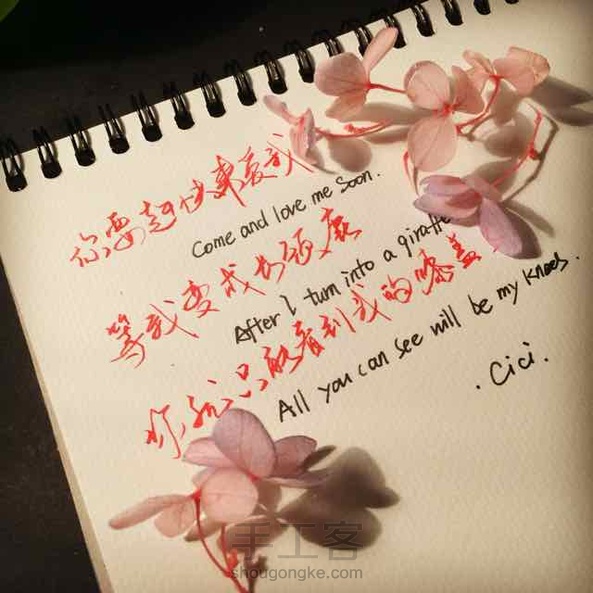 你要赶快来爱我
Come and love me soon.
等我变成长颈鹿
After I turn into a giraffe
你就只能看到我的膝盖
All you can see will be my knees.
· Cici ·
手工客
shougongke.com